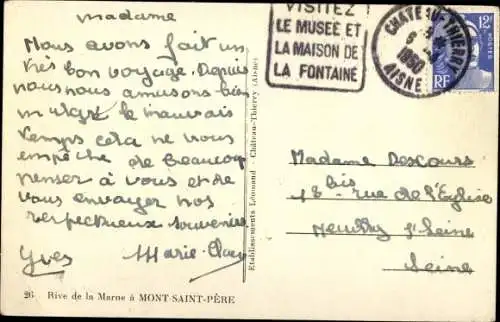 Madame
Nous avons fait un
très bon voyage. Depuis
nous nous amusons bien
malgré le mauvais
temps cela ne vous
empêche de beaucoup
penser à vous et de
vous envoyer nos
respectueux souvenirs
Yves Marie-
26 Rive de la Marne à MONT-SAINT-PÈRE
Etablissements - Château-Thierry (Aisne)
VISITEZ
LE MUSÉE ET
LA MAISON DE
LA FONTAINE
CHATEAU-THIERRY
AISNE
12F
POSTES
RF
Madame Descours
18 bis rue de l'Eglise
Neuilly s/ Seine
Seine